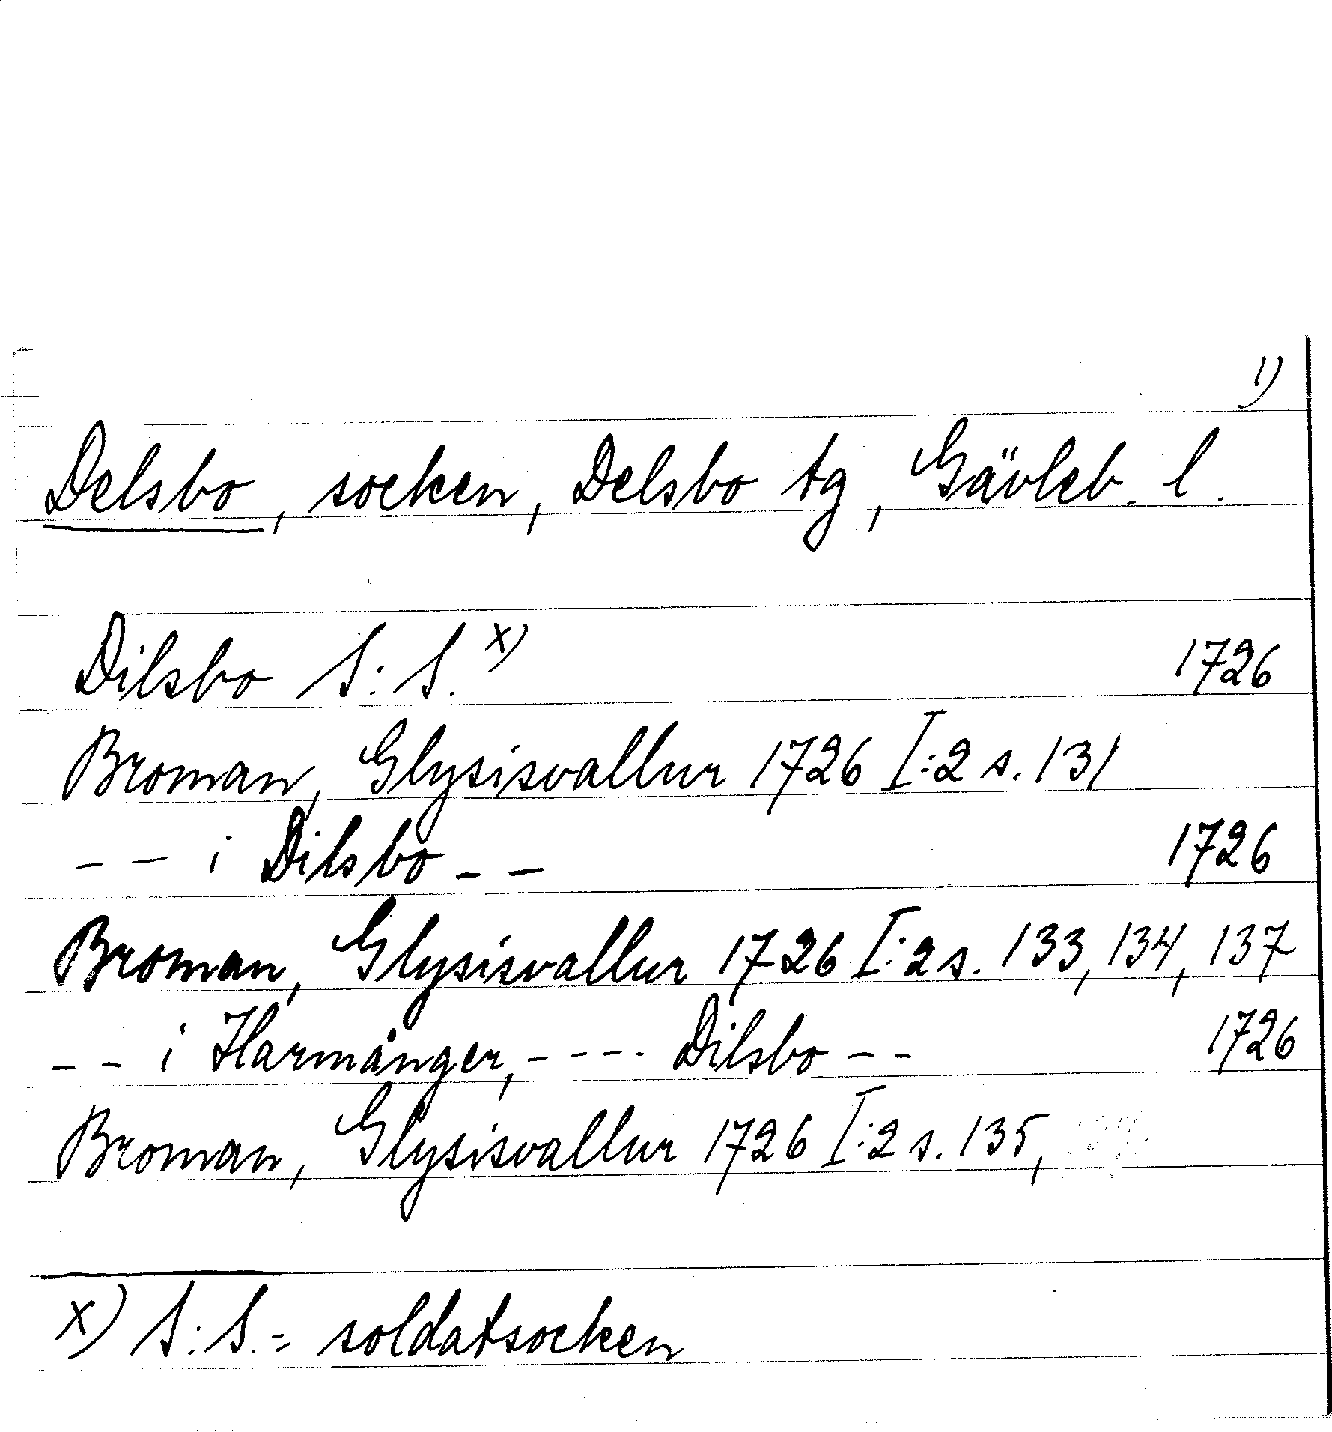 1)
Delsbo, socken, Delsbo tg, Gävleb. l.
Dilsbo S:S. x) 1726
Broman, Glysisvallur 1726 I:2 s. 131
- - i Dilsbo - - 1726
Broman, Glysisvallur 1726 I:2 s. 133, 134, 137
- - i Harmånger, - - - - Dilsbo - - 1726
Broman, Glysisvallur 1726 I:2 s. 135,
x) S:S. = soldatsocken